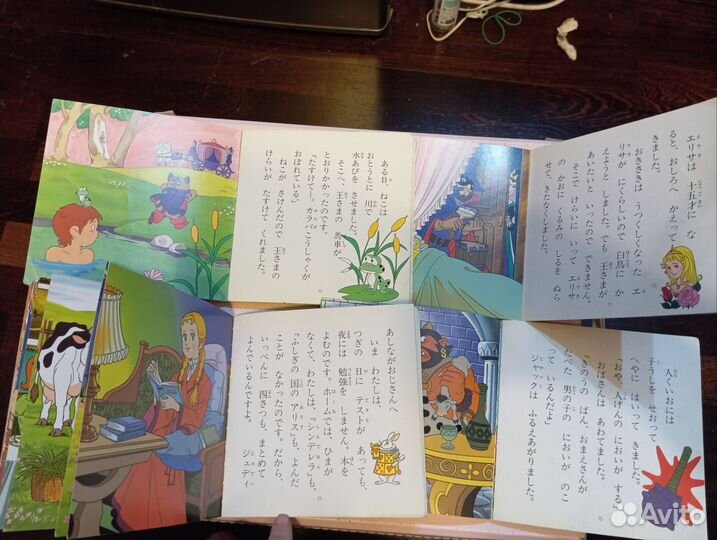 ある日、ねこは
おとうとに 川で
水あびを させました。
そこへ、王さまの 馬車が
とおりかかったのです。
「たすけてー。カラバこうしゃくが
おぼれている」
ねこが さけんだので 王さまの
けらいが たすけて くれました。
エリサは 十五才に な
ると、おしろへ かえって
きました。
おきさきは うつくしくなった エ
リサが にくらしいので 白鳥に か
えようと しました。でも 王さまが
あいたいと いったので できません。
そこで けらいに いって エリサ
の かおに くるみの しるを ぬら
せて、きたなくしました。
7
あしながおじさんへ
いま わたしは、
つぎの 日に テストが あっても、
夜には 勉強を しません。本を
よむのです。ホームでは、ひまが
なくて、わたしは、『シンデレラ』も、
『ふしぎの 国の アリス』も、よんだ
ことが なかったのです。だから、
いっぺんに 四さつも、まとめて
よんでいるんですよ。
ジュディ
人くいおには
子うしを せおって
へやに はいって きました。
「おや、人げんの においが する」
おばさんは あわてました。
「きのうの ばん、おまえさんが
たべた 男の子の においが のこ
って いるんだよ」
ジャックは ふるえあがりました。
15
Avito